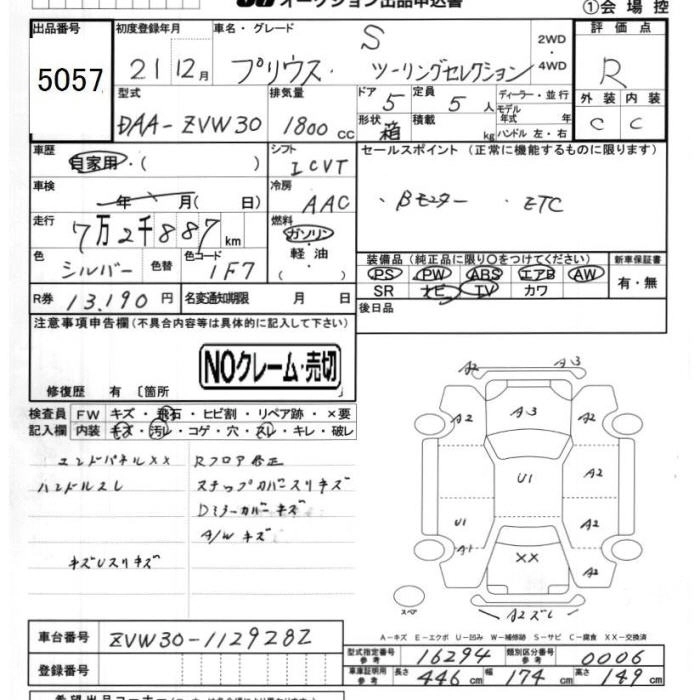 オークション出品申込書
①会場控
出品番号
5057
初度登録年月
21年12月
車名・グレード
S
プリウス ツーリングセレクション
2WD
・
4WD
評価点
R
型式
DAA-ZVW30
排気量
1800 cc
ドア
5
定員
5人
形状
箱
積載
kg
ディーラー・並行
モデル
年式 年
ハンドル 左・右
外装 内装
C C
車歴
自家用・( )
シフト
ICVT
車検
年 月( 日)
冷房
AAC
走行
7万2千887km
燃料
ガソリン
・
軽油
・
( )
色
シルバー
色替
色コード
1F7
R券
13,190円
名変通知期限 月 日
セールスポイント (正常に機能するものに限ります)
・Bモニター ・ETC
装備品(純正品に限り〇をつけてください)
PS PW ABS エアB AW
SR ナビ TV カワ
新車保証書
有・無
後日品
注意事項申告欄(不具合内容等は具体的に記入して下さい)
NOクレーム・売切
修復歴 有〔箇所 〕
検査員
記入欄
FW キズ・飛石・ヒビ割・リペア跡・×要
内装 キズ・汚レ・コゲ・穴・スレ・キレ・破レ
エンドパネルXX
Rフロア修正
ハンドルスレ
ステップカバースリキズ
Dミラーカバーキズ
A/Wキズ
キズUスリキズ
A2 A3
A2 A3 A2
U1 A2
U1 A2
A1 XX A2
スペア
A2ズレ
A-キズ E-エクボ U-凹み W-補修跡 S-サビ C-腐食 XX-交換済
車台番号
ZVW30-1129282
登録番号
型式指定番号
参考
16294
類別区分番号
参考
0006
車庫証明用
参考
長さ 446cm 幅 174cm 高さ 149cm